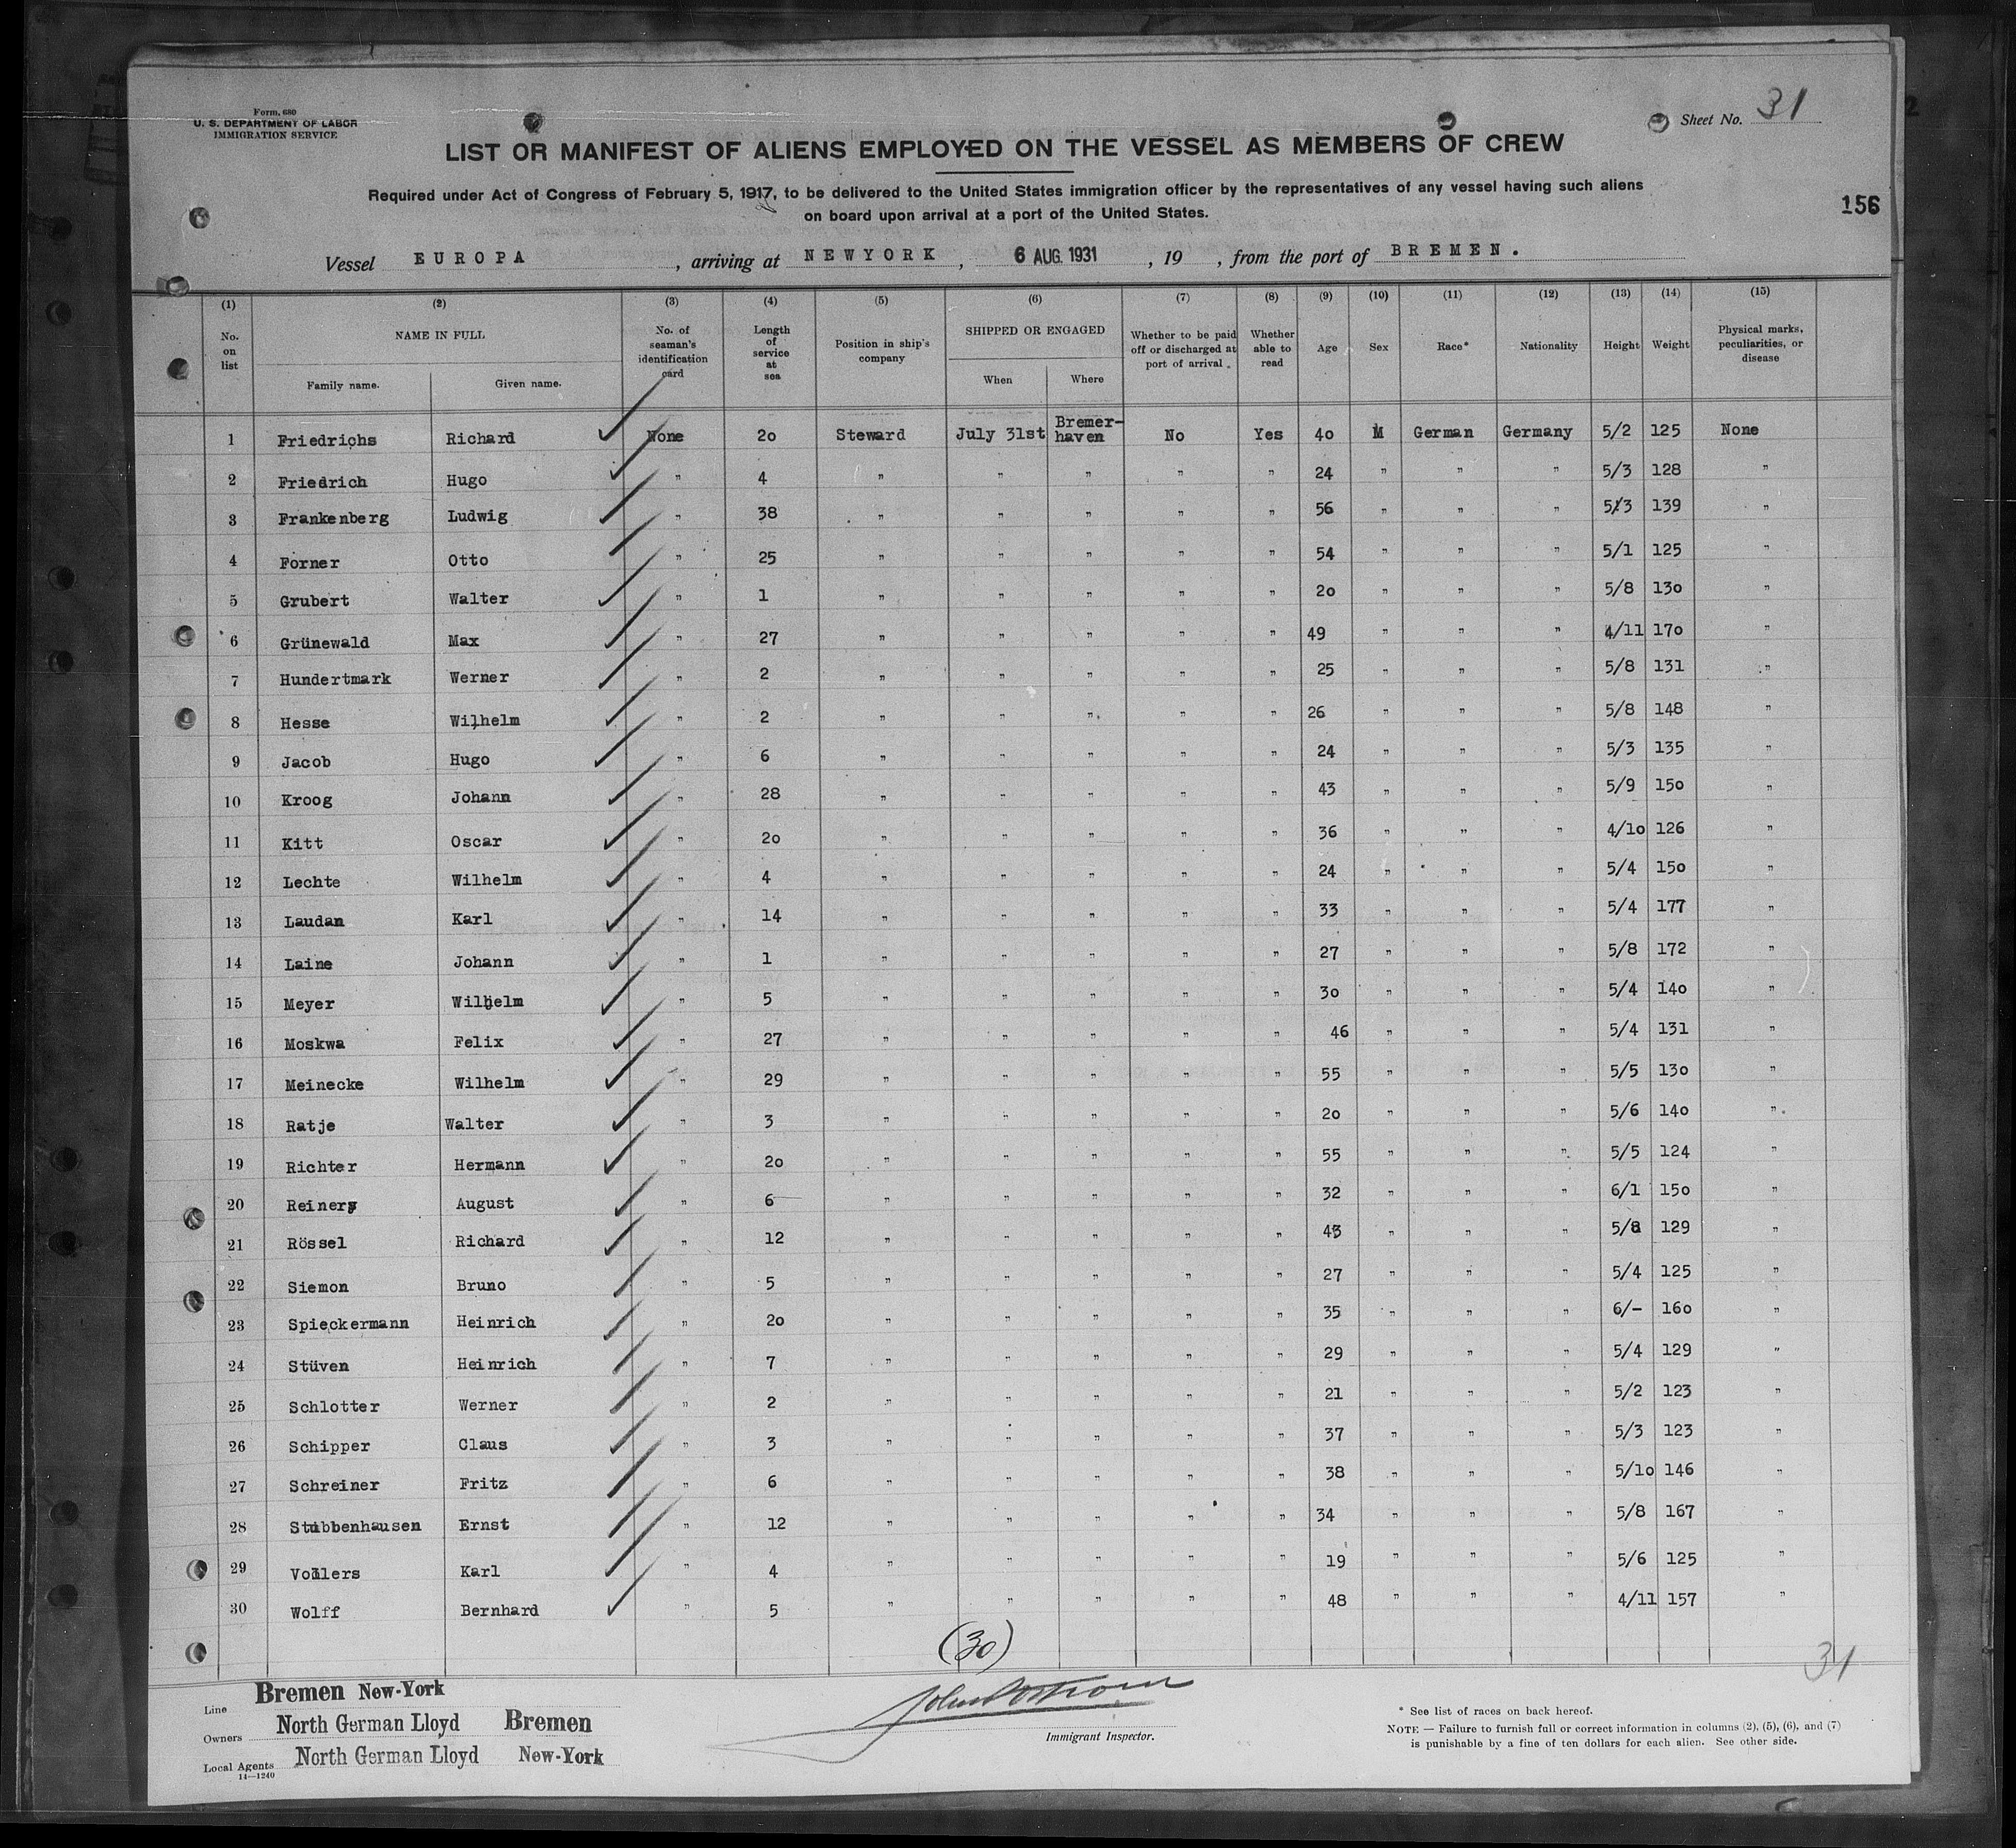 Form 680
U. S. DEPARTMENT OF LABOR
IMMIGRATION SERVICE
Sheet No. 31
LIST OR MANIFEST OF ALIENS EMPLOYED ON THE VESSEL AS MEMBERS OF CREW
Required under Act of Congress of February 5, 1917, to be delivered to the United States immigration officer by the representatives of any vessel having such aliens
on board upon arrival at a port of the United States.
156
Vessel EUROPA, arriving at NEWYORK, 6 AUG. 1931, 19 , from the port of BREMEN.
(1) (2) (3) (4) (5) (6) (7) (8) (9) (10) (11) (12) (13) (14) (15)
No. on list NAME IN FULL Family name. Given name. No. of seaman's identification card Length of service at sea Position in ship's company SHIPPED OR ENGAGED When Where Whether to be paid off or discharged at port of arrival. Whether able to read Age Sex Race* Nationality Height Weight Physical marks, peculiarities, or disease
1 Friedrichs Richard None 20 Steward July 31st Bremerhaven No Yes 40 M German Germany 5/2 125 None
2 Friedrich Hugo " 4 " " " " " 24 " " " 5/3 128 "
3 Frankenberg Ludwig " 38 " " " " " 56 " " " 5/3 139 "
4 Forner Otto " 25 " " " " " 54 " " " 5/1 125 "
5 Grubert Walter " 1 " " " " " 20 " " " 5/8 130 "
6 Grünewald Max " 27 " " " " " 49 " " " 4/11 170 "
7 Hundertmark Werner " 2 " " " " " 25 " " " 5/8 131 "
8 Hesse Wilhelm " 2 " " " " " 26 " " " 5/8 148 "
9 Jacob Hugo " 6 " " " " " 24 " " " 5/3 135 "
10 Kroog Johann " 28 " " " " " 43 " " " 5/9 150 "
11 Kitt Oscar " 20 " " " " " 36 " " " 4/10 126 "
12 Lechte Wilhelm " 4 " " " " " 24 " " " 5/4 150 "
13 Laudan Karl " 14 " " " " " 33 " " " 5/4 177 "
14 Laine Johann " 1 " " " " " 27 " " " 5/8 172 "
15 Meyer Wilhelm " 5 " " " " " 30 " " " 5/4 140 "
16 Moskwa Felix " 27 " " " " " 46 " " " 5/4 131 "
17 Meinecke Wilhelm " 29 " " " " " 55 " " " 5/5 130 "
18 Ratje Walter " 3 " " " " " 20 " " " 5/6 140 "
19 Richter Hermann " 20 " " " " " 55 " " " 5/5 124 "
20 Reiners August " 6 " " " " " 32 " " " 6/1 150 "
21 Rössel Richard " 12 " " " " " 43 " " " 5/8 129 "
22 Siemon Bruno " 5 " " " " " 27 " " " 5/4 125 "
23 Spieckermann Heinrich " 20 " " " " " 35 " " " 6/- 160 "
24 Stüven Heinrich " 7 " " " " " 29 " " " 5/4 129 "
25 Schlotter Werner " 2 " " " " " 21 " " " 5/2 123 "
26 Schipper Claus " 3 " " " " " 37 " " " 5/3 123 "
27 Schreiner Fritz " 6 " " " " " 38 " " " 5/10 146 "
28 Stübbenhausen Ernst " 12 " " " " " 34 " " " 5/8 167 "
29 Vollers Karl " 4 " " " " " 19 " " " 5/6 125 "
30 Wolff Bernhard " 5 " " " " " 48 " " " 4/11 157 "
(30)
31
Line Bremen New-York
Owners North German Lloyd Bremen
Local Agents North German Lloyd New-York
14—1240
Immigrant Inspector.
* See list of races on back hereof.
NOTE — Failure to furnish full or correct information in columns (2), (5), (6), and (7)
is punishable by a fine of ten dollars for each alien. See other side.